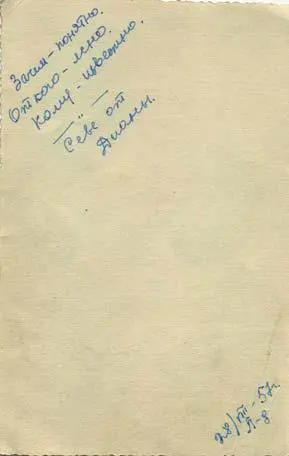 Зачем - понятно.
От кого - ясно.
Кому - известно.
— " —
Себе от
Дианы.
28/III - 57г.
Л-д